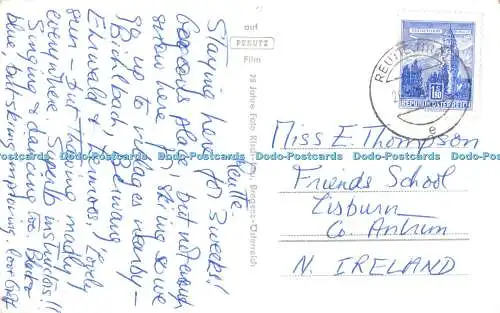 Reutte.
Staying here for 3 weeks!
Gorgeous place but not enough
snow here for skiing so we
go up to villages nearby –
Bichlbach, Berwang
Ehrwald & Lermoos. Lovely
sun – but thawing madly
everywhere. Superb instructors!!
Singing & dancing too.
blue, but skiing improving. love
auf
PERUTZ
Film
75 Jahre Foto
Bregenz-Österreich
REUTTE, TIROL
REPUBLIK ÖSTERREICH
1.50
e
Miss E. Thompson
Friends School
Lisburn
Co. Antrim
N. IRELAND
Dodo-Postcards Dodo-Postcards Dodo-Postcards Dodo-Postcards Dodo-Postcards Dodo-Postcards